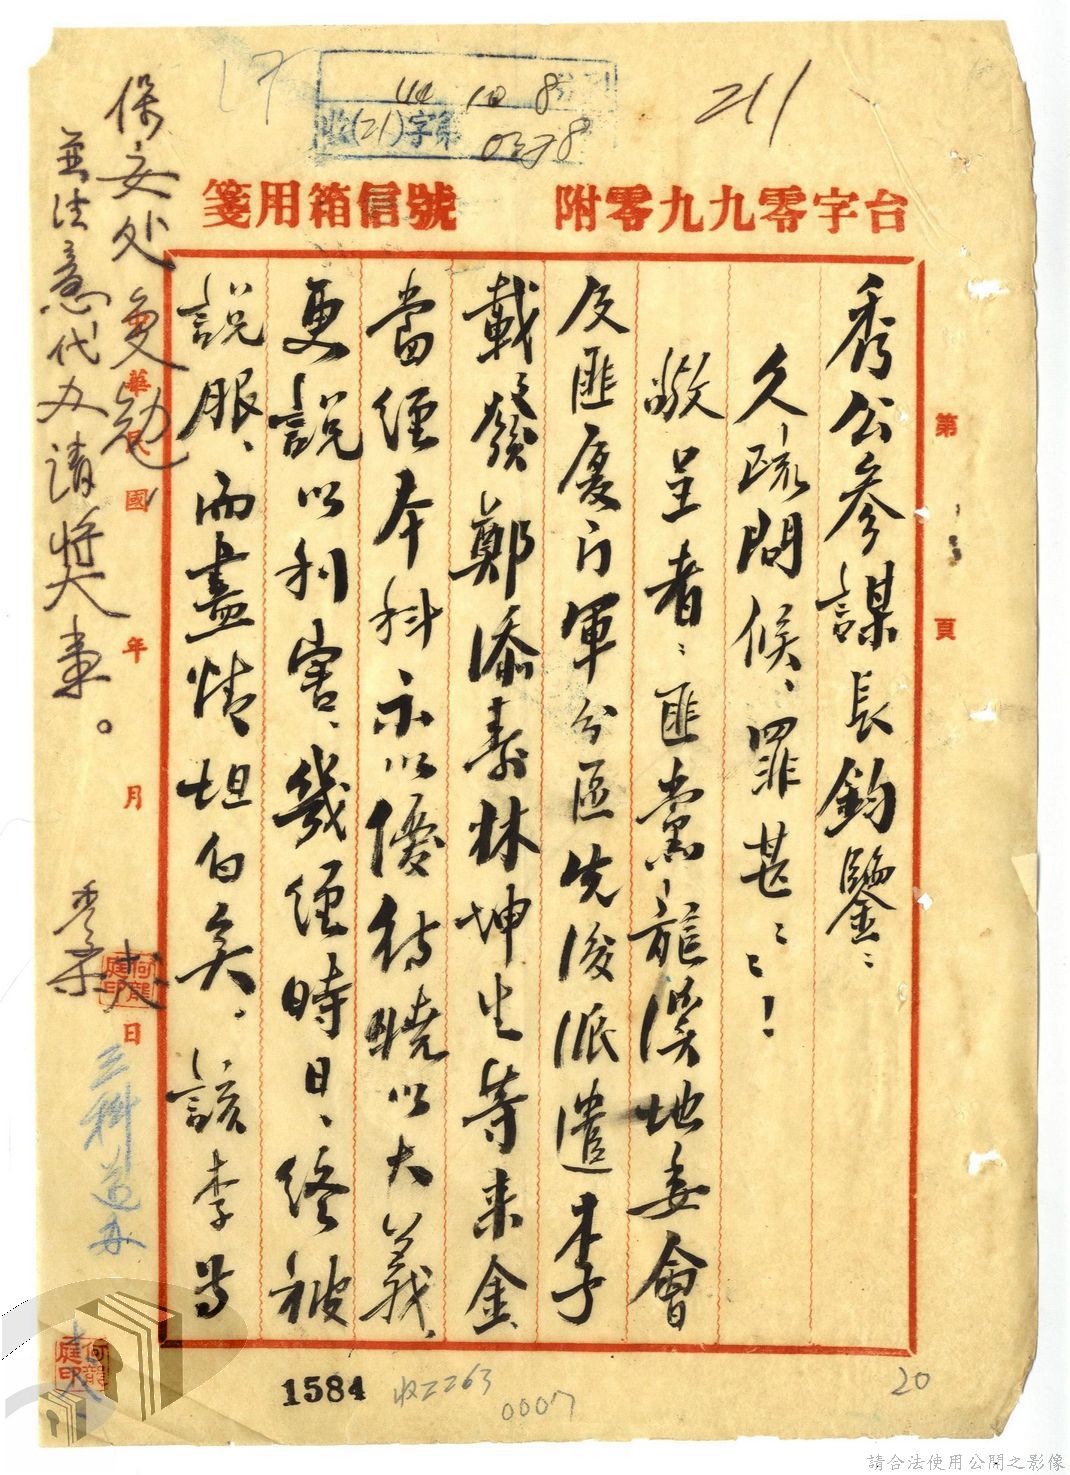 211
44 10 8
收(21)字第
0378
台字零九九零附
號信箱用箋
第 頁
秀公參謀長鈞鑒:
久疏問候、罪甚:::!
敬呈者:匪黨龍溪地委會
及匪厦门軍分區先後派遣李
載發鄭添壽林坤生等來金
當經本科示以優待曉以大義、
更說以利害、幾經時日、終被
說服、而盡情坦白矣。該李等
華民國 年 月 日
保安处
並法意代办請獎事。
三科
何龍庭印
何龍庭印
1584
收2263
0007
20
請合法使用公開之影像